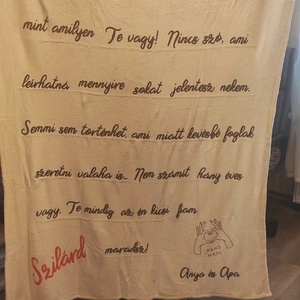 mint amilyen Te vagy! Nincs szó, ami
leírhatná mennyire sokat jelentesz nekem.
Semmi sem történhet, ami miatt kevésbé foglak
szeretni valaha is. Nem számít hány éves
vagy. Te mindig az én kicsi fiam
Szilárd maradsz!
HAND MADE
Anya és Apa